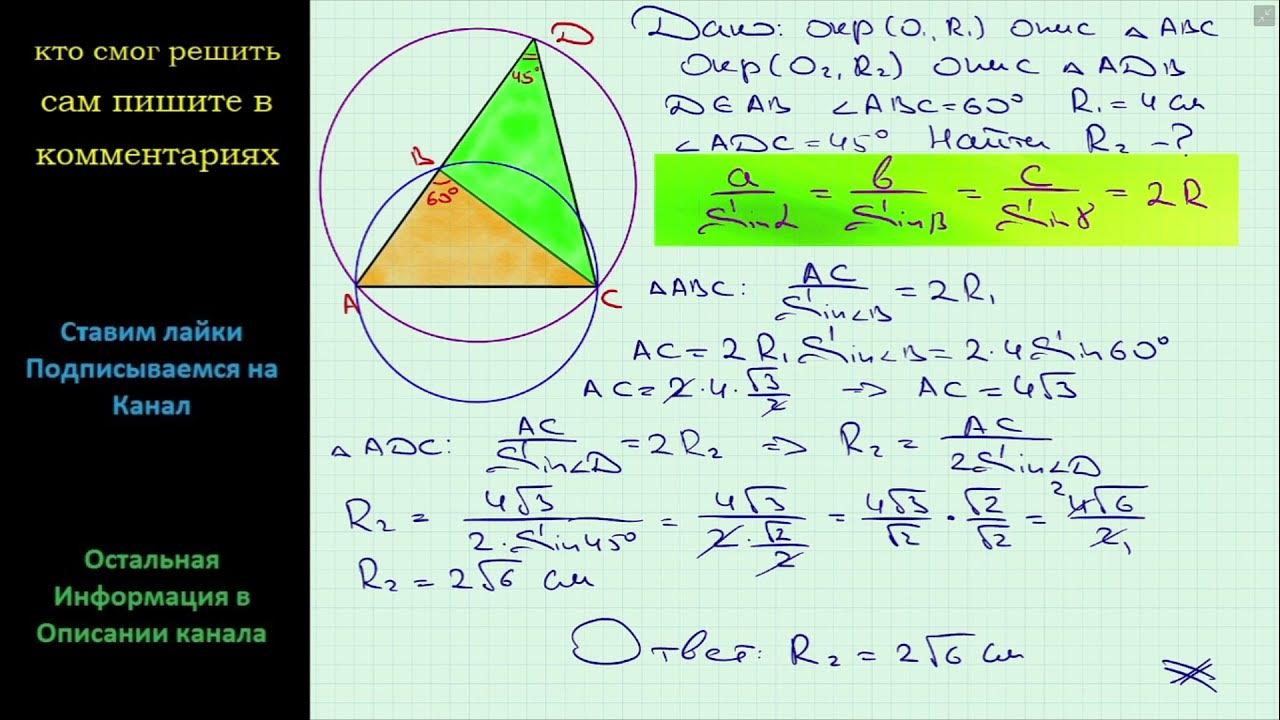 кто смог решить
сам пишите в
комментариях
Ставим лайки
Подписываемся на
Канал
Остальная
Информация в
Описании канала
D
45°
B
60°
A
C
Дано: Окр(O₁, R₁) опис △ABC
Окр(O₂, R₂) опис △ADB
D∈AB ∠ABC=60° R₁=4 см
∠ADC=45° Найти R₂ -?
a/Sinα = b/Sinβ = c/Sinγ = 2R
△ABC: AC/Sin∠B = 2R₁
AC = 2R₁Sin∠B = 2·4Sin60°
AC = 2·4·√3/2 => AC = 4√3
△ADC: AC/Sin∠D = 2R₂ => R₂ = AC/2Sin∠D
R₂ = 4√3/2·Sin45° = 4√3/2·√2/2 = 4√3/√2 · √2/√2 = ²4√6/2₁
R₂ = 2√6 см
Ответ: R₂ = 2√6 см